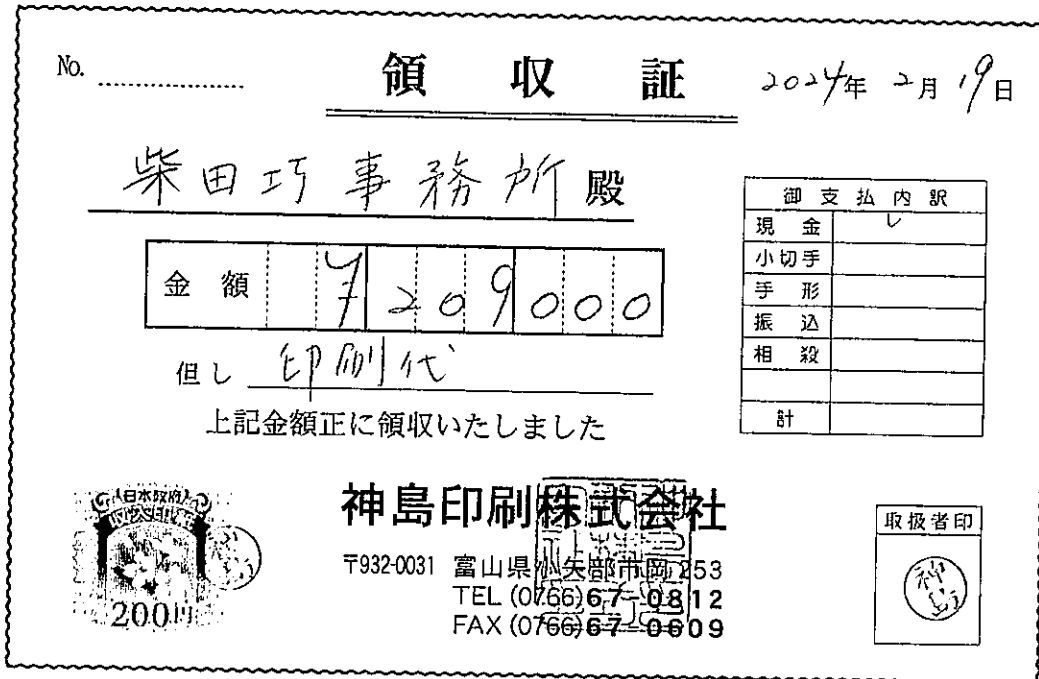 No.
領収証
2024年 2月 19日
柴田巧事務所 殿
金額 ¥209000
但し 印刷代
上記金額正に領収いたしました
御支払内訳
現金 レ
小切手
手形
振込
相殺
計
日本政府
収入印紙
200円
神島印刷株式会社
〒932-0031 富山県小矢部市岡253
TEL (0766)67-0812
FAX (0766)67-0609
取扱者印
神島